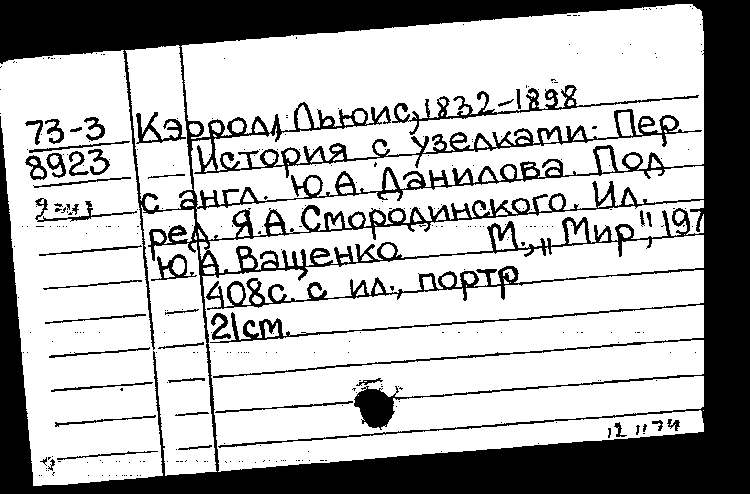 73-3 Кэррол, Льюис, 1832-1898
8923 История с узелками. Пер.
с англ. Ю.А. Данилова. Под
ред. Я.А. Смородинского. Ил.
Ю.А. Ващенко. М., „Мир", 197
408с. с ил., портр.
21cm.